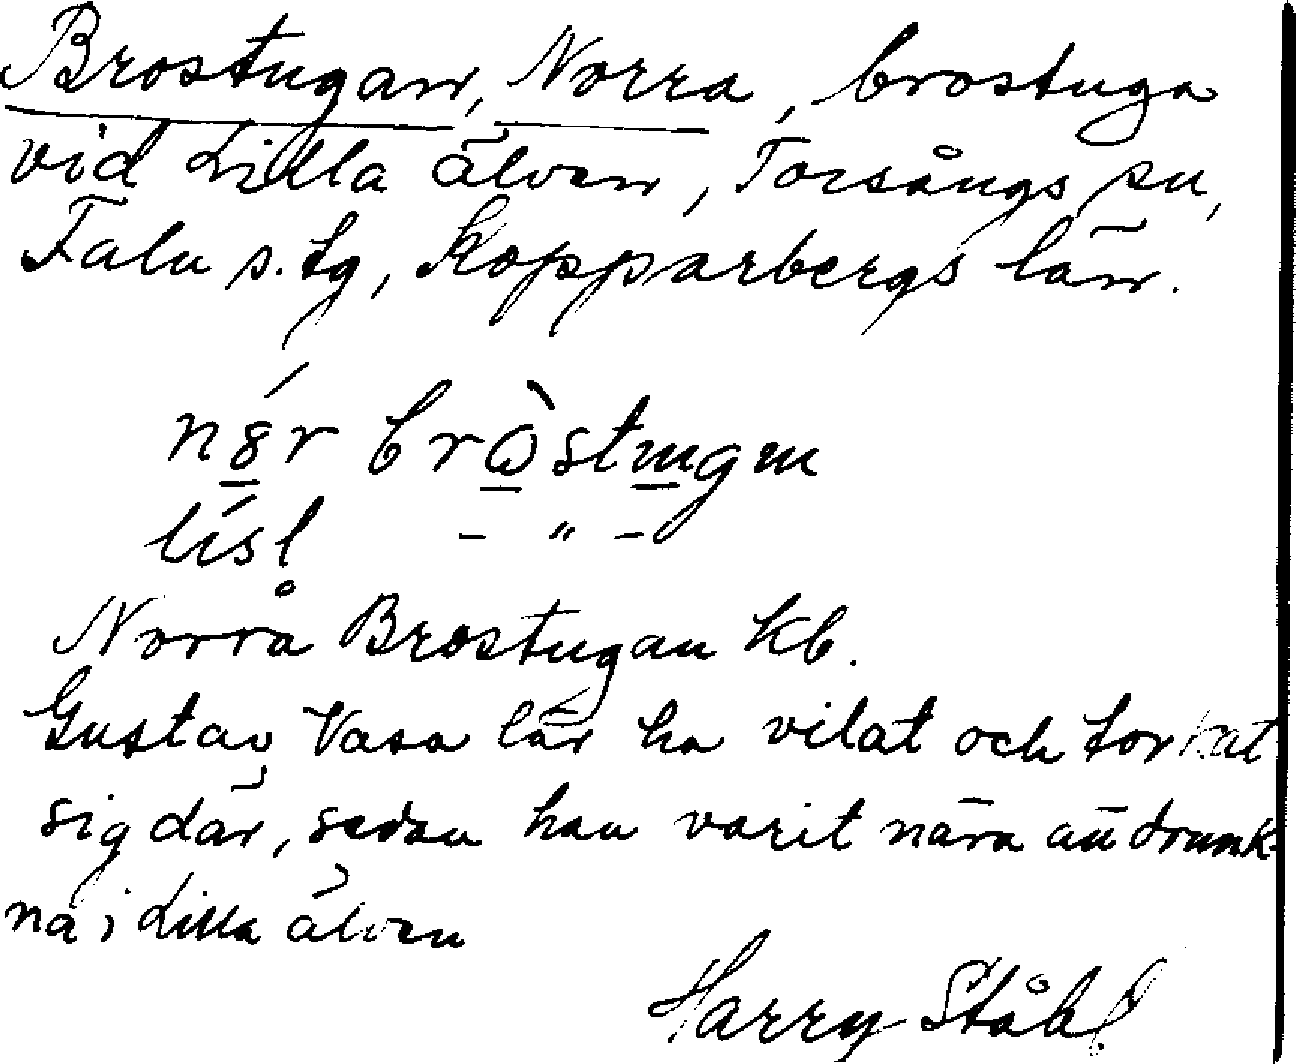 Brostugan, Norra, brostuga
vid Lilla älven, Torsångs sn,
Falu s. tg, Kopparbergs län.
nór bròstugen
lísl - " -
Norra Brostugan kb.
Gustav Vasa lär ha vilat och torkat
sig där, sedan han varit nära att drunk-
na i Lilla älven
Harry Ståhl